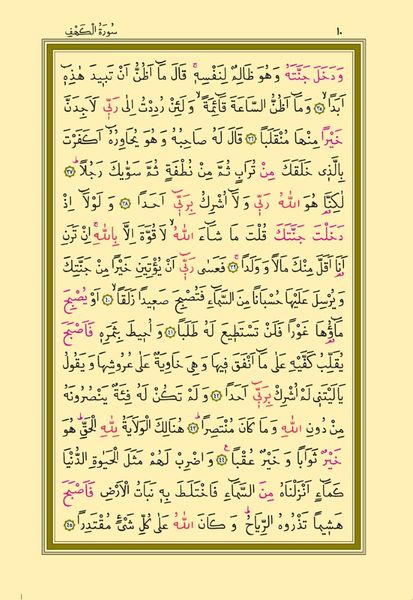 سُورَةُ الْكَهْفِ
١٠
وَدَخَلَ جَنَّتَهُ وَهُوَ ظَالِمٌ لِنَفْسِهِۚ قَالَ مَٓا اَظُنُّ اَنْ تَب۪يدَ هٰذِه۪ٓ
اَبَدًاۙ ﴿٣٥﴾ وَمَٓا اَظُنُّ السَّاعَةَ قَٓائِمَةًۙ وَلَئِنْ رُدِدْتُ اِلٰى رَبّ۪ي لَاَجِدَنَّ
خَيْرًا مِنْهَا مُنْقَلَبًاۚ ﴿٣٦﴾ قَالَ لَهُ صَاحِبُهُ وَهُوَ يُحَاوِرُهُٓ اَكَفَرْتَ
بِالَّذ۪ي خَلَقَكَ مِنْ تُرَابٍ ثُمَّ مِنْ نُطْفَةٍ ثُمَّ سَوّٰيكَ رَجُلًاۜ ﴿٣٧﴾
لٰكِنَّا۬ هُوَ اللّٰهُ رَبّ۪ي وَلَٓا اُشْرِكُ بِرَبّ۪ٓي اَحَدًا ﴿٣٨﴾ وَلَوْلَٓا اِذْ
دَخَلْتَ جَنَّتَكَ قُلْتَ مَا شَٓاءَ اللّٰهُۙ لَا قُوَّةَ اِلَّا بِاللّٰهِۚ اِنْ تَرَنِ
اَنَا۬ اَقَلَّ مِنْكَ مَالًا وَوَلَدًاۚ ﴿٣٩﴾ فَعَسٰى رَبّ۪ٓي اَنْ يُؤْتِيَنِ خَيْرًا مِنْ جَنَّتِكَ
وَيُرْسِلَ عَلَيْهَا حُسْبَانًا مِنَ السَّمَٓاءِ فَتُصْبِحَ صَع۪يدًا زَلَقًاۙ ﴿٤٠﴾ اَوْ يُصْبِحَ
مَٓاؤُ۬هَا غَوْرًا فَلَنْ تَسْتَط۪يعَ لَهُ طَلَبًا ﴿٤١﴾ وَاُح۪يطَ بِثَمَرِه۪ فَاَصْبَحَ
يُقَلِّبُ كَفَّيْهِ عَلٰى مَٓا اَنْفَقَ ف۪يهَا وَهِيَ خَاوِيَةٌ عَلٰى عُرُوشِهَا وَيَقُولُ
يَا لَيْتَن۪ي لَمْ اُشْرِكْ بِرَبّ۪ٓي اَحَدًا ﴿٤٢﴾ وَلَمْ تَكُنْ لَهُ فِئَةٌ يَنْصُرُونَهُ
مِنْ دُونِ اللّٰهِ وَمَا كَانَ مُنْتَصِرًاۜ ﴿٤٣﴾ هُنَالِكَ الْوَلَايَةُ لِلّٰهِ الْحَقِّۜ هُوَ
خَيْرٌ ثَوَابًا وَخَيْرٌ عُقْبًا۟ ﴿٤٤﴾ وَاضْرِبْ لَهُمْ مَثَلَ الْحَيٰوةِ الدُّنْيَا
كَمَٓاءٍ اَنْزَلْنَاهُ مِنَ السَّمَٓاءِ فَاخْتَلَطَ بِه۪ نَبَاتُ الْاَرْضِ فَاَصْبَحَ
هَش۪يمًا تَذْرُوهُ الرِّيَاحُۜ وَكَانَ اللّٰهُ عَلٰى كُلِّ شَيْءٍ مُقْتَدِرًا ﴿٤٥﴾